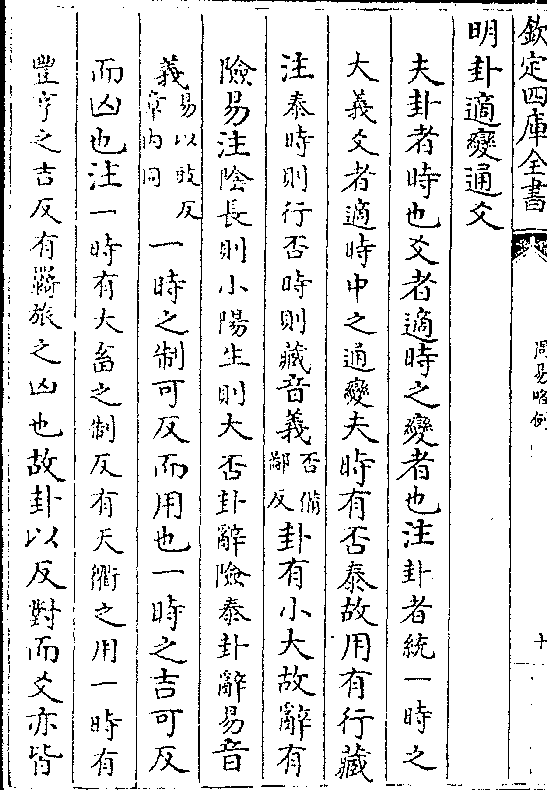 欽定四庫全書
周易略例
十
明卦適變通爻
夫卦者時也爻者適時之變者也注卦者統一時之
大義爻者適時中之通變夫時有否泰故用有行藏
注泰時則行否時則藏音義否備鄙反卦有小大故辭有
險易注陰長則小陽生則大否卦辭險泰卦辭易音
義易以豉反章內同一時之制可反而用也一時之吉可反
而凶也注一時有大畜之制反有天衢之用一時有
豐亨之吉反有羇旅之凶也故卦以反對而爻亦皆